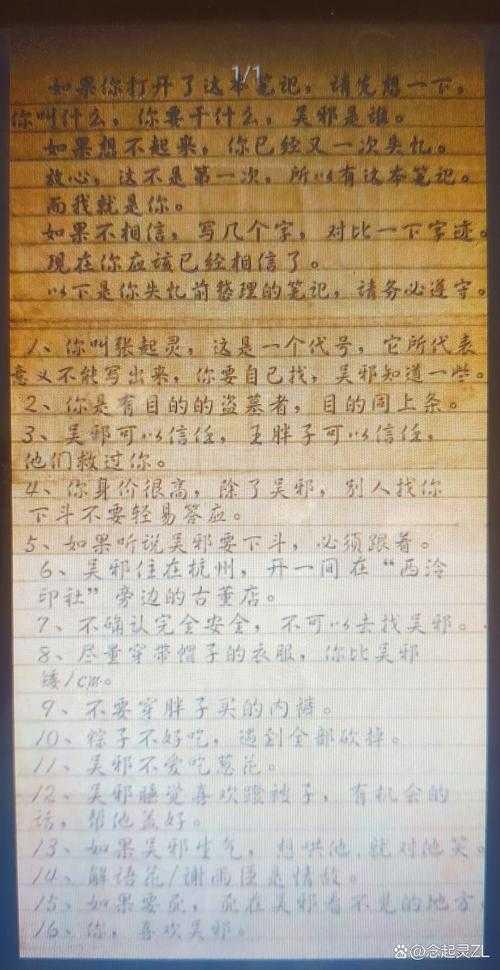 1/1
如果你打开了这本笔记，请先想一下，
你叫什么，你要干什么，吴邪是谁。
如果想不起来，你已经又一次失忆。
放心，这不是第一次，所以有这本笔记。
而我就是你。
如果不相信，写几个字，对比一下字迹。
现在你应该已经相信了。
以下是你失忆前整理的笔记，请务必遵守。
1、你叫张起灵，这是一个代号，它所代表
意义不能写出来，你要自己找，吴邪知道一些。
2、你是有目的的盗墓者，目的同上条。
3、吴邪可以信任，王胖子可以信任，
他们救过你。
4、你身价很高，除了吴邪，别人找你
下斗不要轻易答应。
5、如果听说吴邪要下斗，必须跟着。
6、吴邪住在杭州，开一间在“西泠
印社”旁边的古董店。
7、不确认完全安全，不可以去找吴邪。
8、尽量穿带帽子的衣服，你比吴邪
矮1cm。
9、不要穿胖子买的内裤。
10、粽子不好吃，遇到全部砍掉。
11、吴邪不爱吃葱花。
12、吴邪睡觉喜欢蹬被子，有机会的
话，帮他盖好。
13、如果吴邪生气，想哄他，就对他笑。
14、解语花/谢雨臣是情敌。
15、如果要死，死在吴邪看不见的地方
16、你，喜欢吴邪。
@念起灵ZL